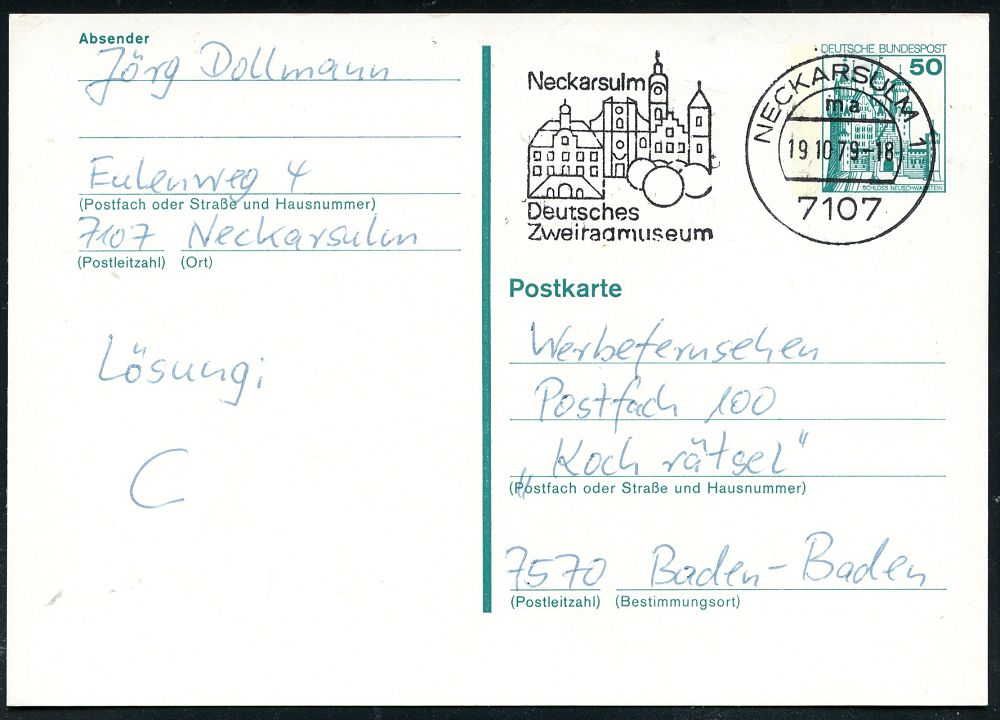 Absender
Jörg Dollmann
Eulenweg 4
(Postfach oder Straße und Hausnummer)
7107 Neckarsulm
(Postleitzahl) (Ort)
Lösung:
C
Neckarsulm
Deutsches
Zweiradmuseum
NECKARSULM 1
ma
19.10.79-18
7107
DEUTSCHE BUNDESPOST
50
SCHLOSS NEUSCHWANSTEIN
Postkarte
Werbefernsehen
Postfach 100
„Kochrätsel"
(Postfach oder Straße und Hausnummer)
7570 Baden-Baden
(Postleitzahl) (Bestimmungsort)